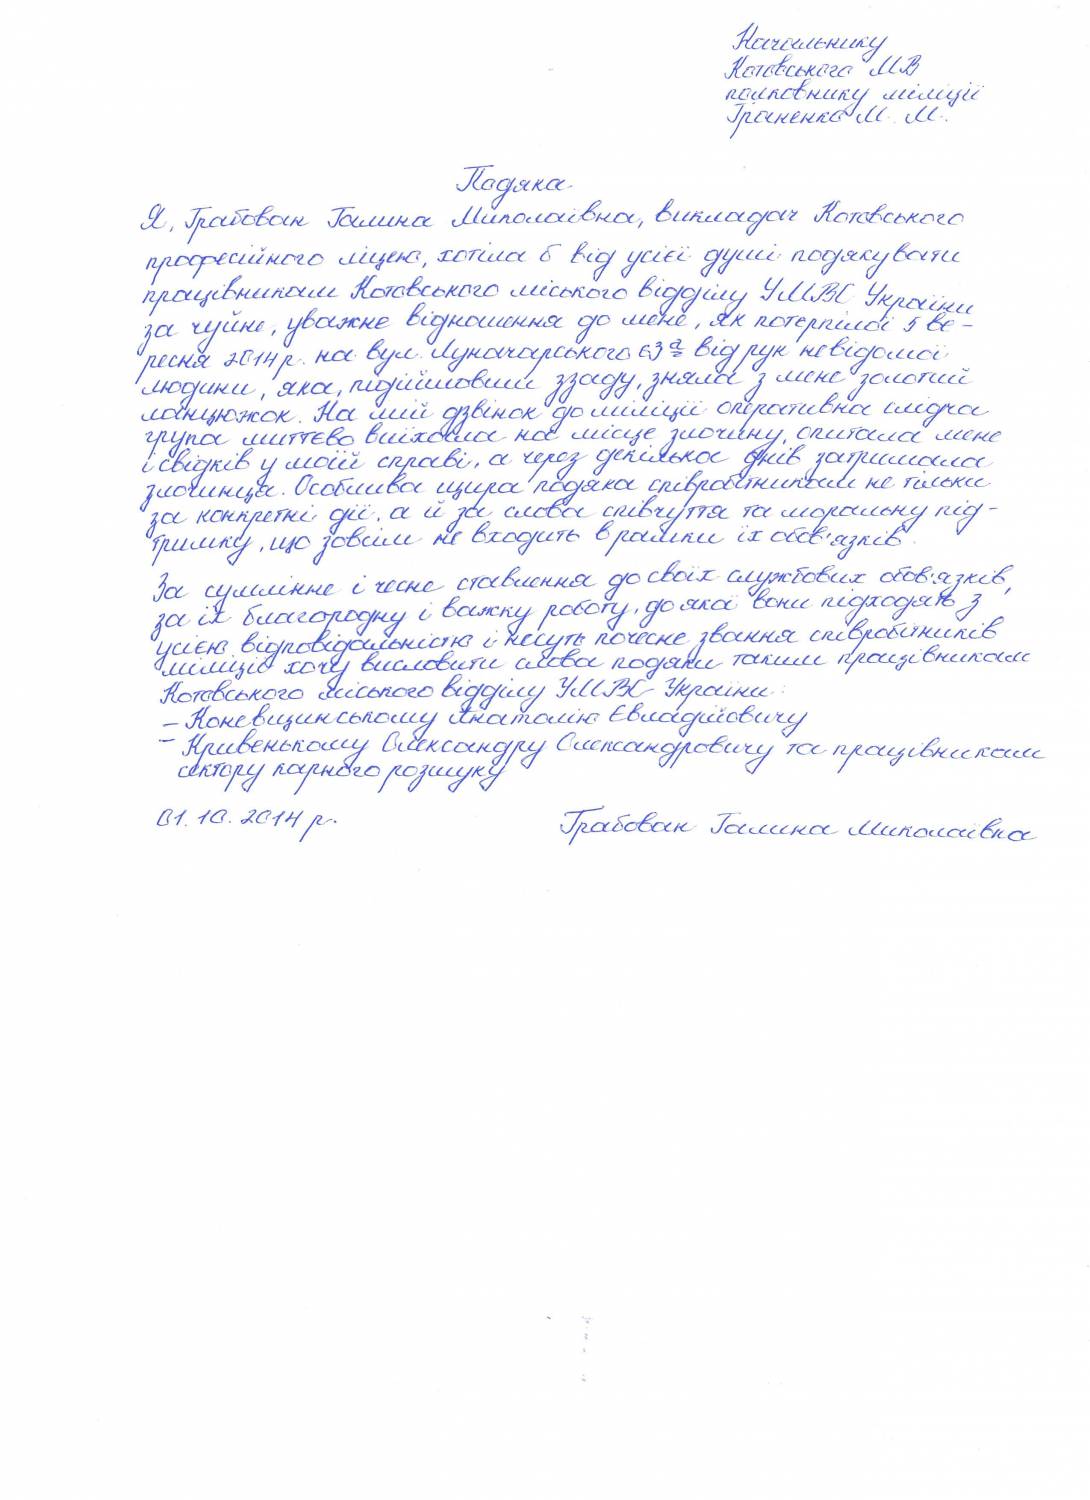 Начальнику
Котовського МВ
полковнику міліції
Граненко М. М.
Подяка.
Я, Грабован Галина Миколаївна, викладач Котовського
професійного ліцею, хотіла б від усієї душі подякувати
працівникам Котовського міського відділу УМВС України
за чуйне, уважне відношення до мене, як потерпілої 5 ве-
ресня 2014 р. на вул. Луначарського 63а від рук невідомої
людини, яка, підійшовши ззаду, зняла з мене золотий
ланцюжок. На мій дзвінок до міліції оперативна слідча
група миттєво виїхала на місце злочину, опитала мене
і свідків у моїй справі, а через декілька днів затримала
злочинця. Особлива щира подяка співробітникам не тільки
за конкретні дії, а й за слова співчуття та моральну під-
тримку, що зовсім не входить в рамки їх обов'язків.
За сумлінне і чесне ставлення до своїх службових обов'язків,
за їх благородну і важку роботу, до якої вони підходять з
усією відповідальністю і несуть почесне звання співробітників
міліції хочу висловити слова подяки таким працівникам
Котовського міського відділу УМВС України:
– Коневщинському Анатолію Євладійовичу
– Кривенькому Олександру Олександровичу та працівникам
сектору карного розшуку
01.10.2014 р.
Грабован Галина Миколаївна